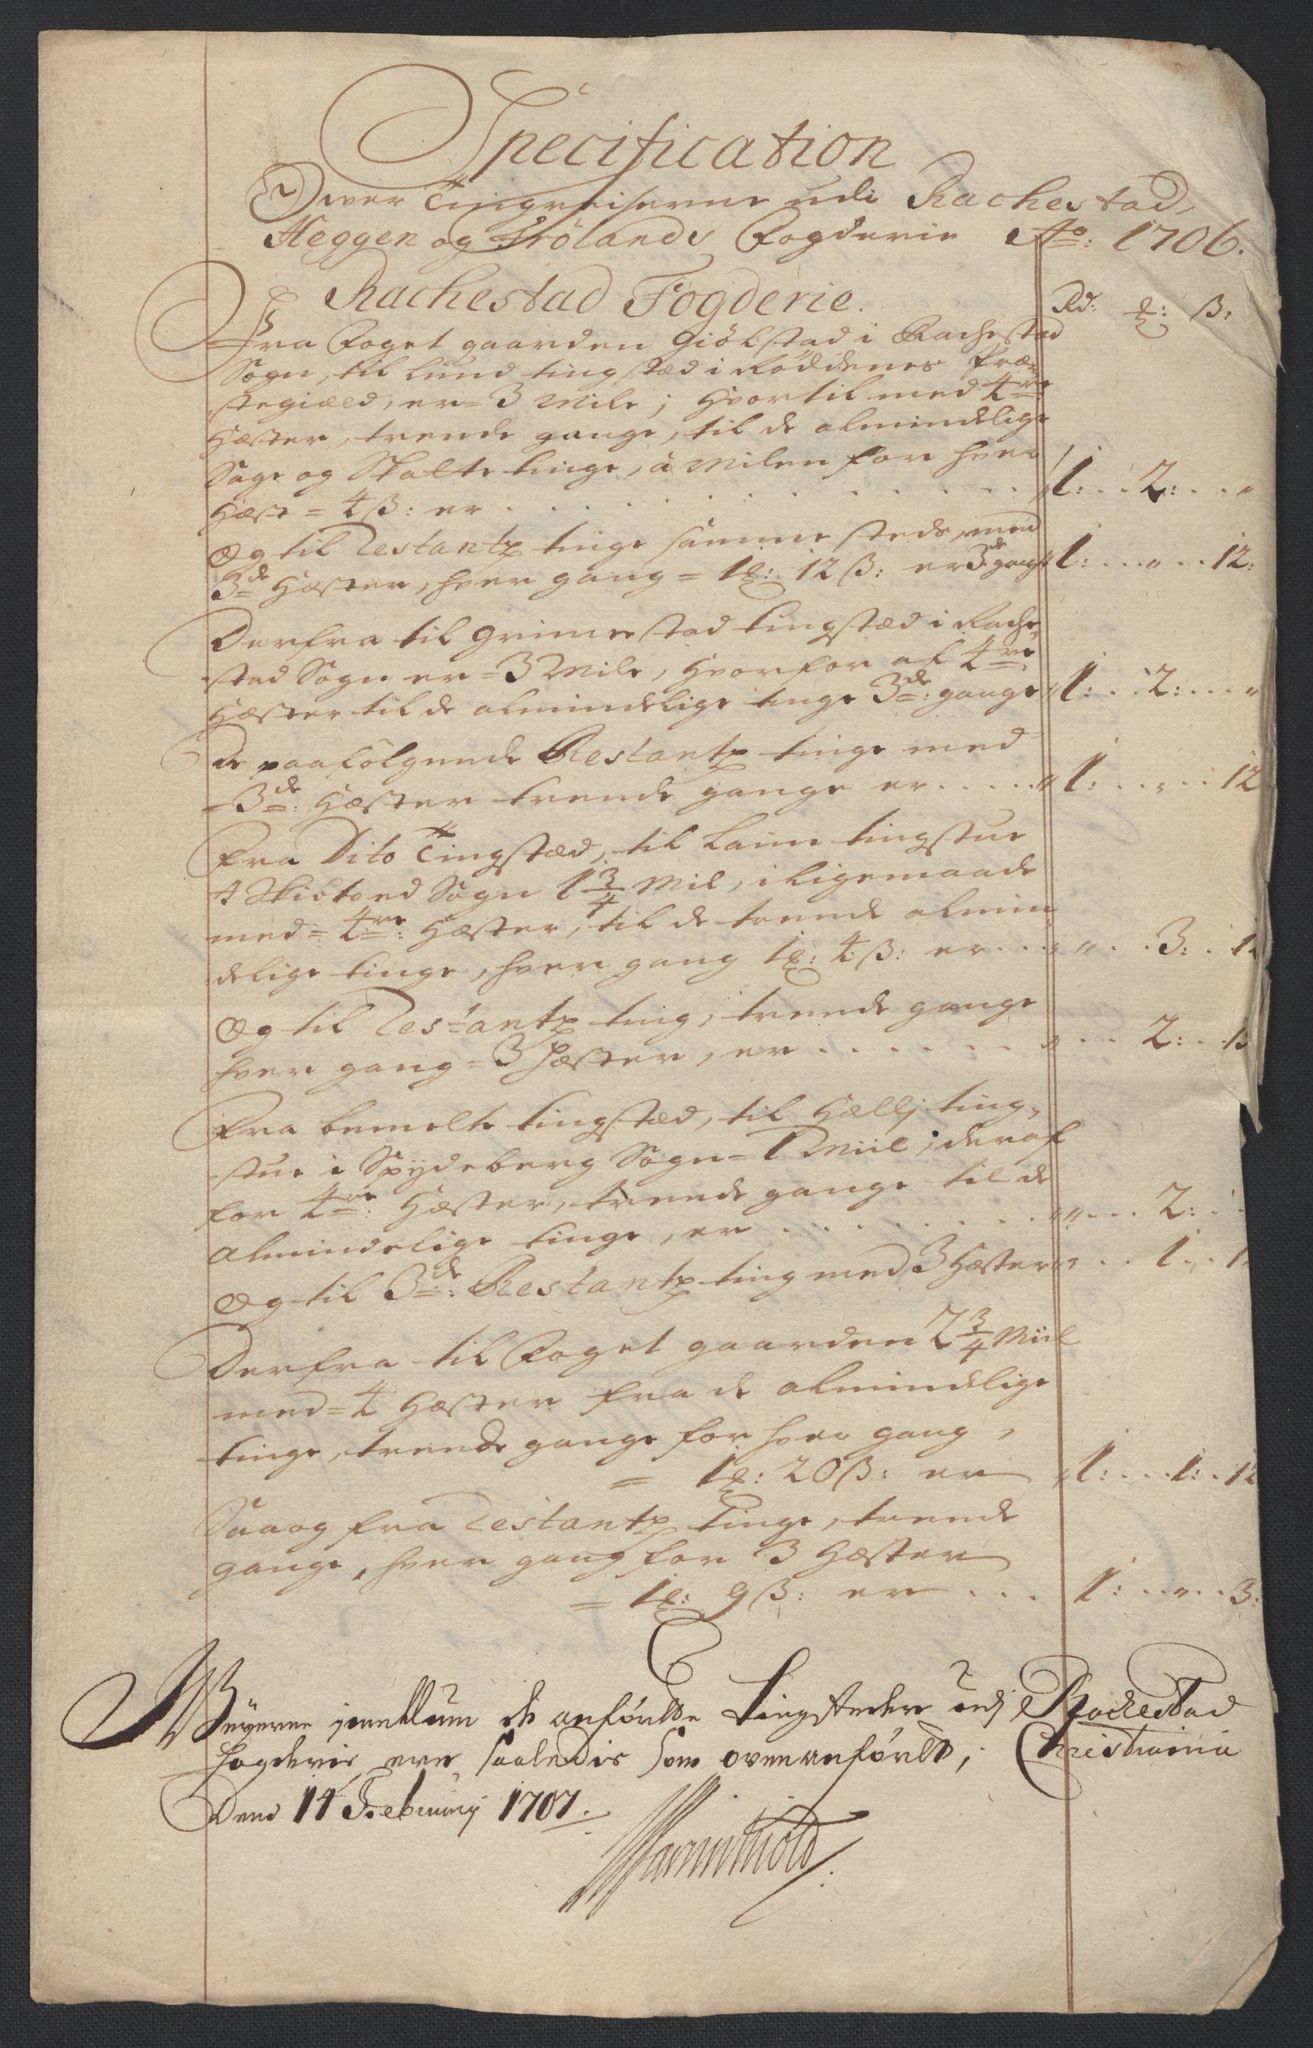 Specification
Over Tingreiserne udi Rachestad,
Heggen og Frølands Fogderie Ao: 1706.
Rachestad Fogderie. Rd: ß:
Fra Foget gaarden Giølstad i Rachestad
Sogn, til Lund tingstæd i Røddenes Præ-
stegiæld, er = 3 Mile; Hvortil med 4re
Hæster, trende gange, til de almindelige
Sage og Skatte tinge, à Milen for hver
Hæst = 4 ß: er . . . . . 1: . . 2: . . "
Og til Restantz tinge samme steds, med
3de Hæster, hver gang = 1 : 12 ß: er 3de gang 1: . . " . . 12:
Derfra til Grimestad tingstæd i Rache-
stad Sogn er = 3 Mile, Hvorfor af 4re
Hæster til de almindelige tinge 3de: gange 1: . . 2: . . "
De paafølgende Restantz tinge med
3de: Hæster trende gange er . . . . 1: . . " . . 12
Fra Dito Tingstæd, til Laim tingstue
i Skibtved Sogn 1 3/4 Mil, i Ligemaade
med = 4re: Hæster, til de trende almin-
delige tinge, hver gang 1 : 4 ß: er . . . " . . 3: . . 12
Og til Restantz ting, trende gange
hver gang = 3 Hæster, er . . . . . . " . . 2: . . 15
Fra bemelte tingstæd, til Hællj ting-
stue i Spydeberg Sogn = 1 Miil; deraf
for 4re: Hæster, trende gange til de
Almindelige tinge, er . . . . . . . " . . 2: . .
Og til 3de: Restantz ting med 3 Hæster " . . 1: . . 1
Derfra til Foget gaarden 2 3/4 Miil
med = 4 Hæster fra de almindelige
tinge, trende gange for hver gang,
= 1 : 20 ß: er 1: . . 1: . . 12
Saa og fra Restantz tinge, trende
gange, hver gang for 3 Hæster
= 1 : 9 ß: er . . . 1: . . " . . 3:
Weyerne jmellum de anførdte Tingsteder udj Rachestad
Fogderie, ere saaledis som ovenanført, Christiania
Dend 14 Februarij 1707.